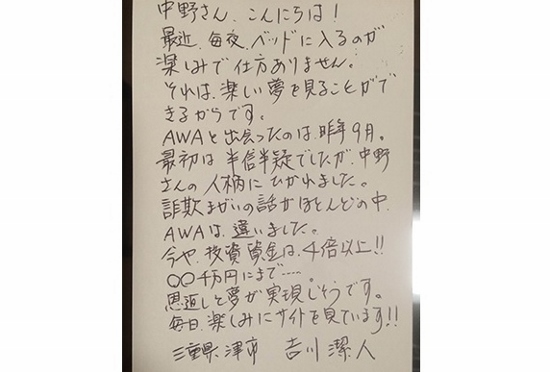 中野さん、こんにちは！
最近、毎夜、ベッドに入るのが
楽しみで仕方ありません。
それは、楽しい夢を見ることがで
きるからです。
AWAと出会ったのは、昨年9月。
最初は半信半疑でしたが、中野
さんの人柄にひかれました。
詐欺まがいの話がほとんどの中、
AWAは、違いました。
今や、投資資金は、4倍以上!!
〇〇千万円にまで……。
恩返しと夢が実現しそうです。
毎日、楽しみにサイトを見ています!!
三重県津市 吉川潔人